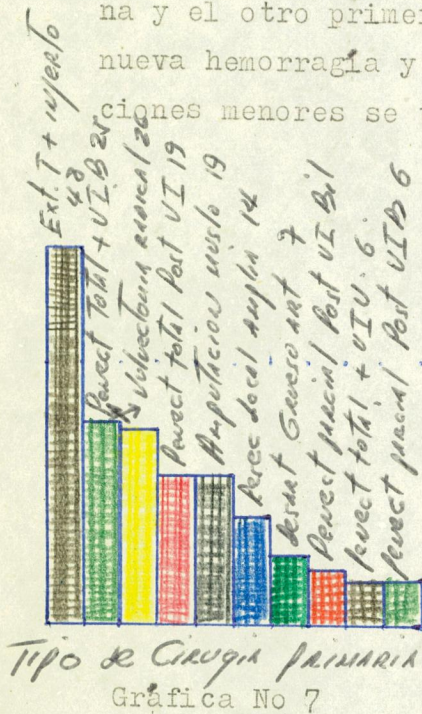 na y el otro primer
nueva hemorragia y
ciones menores se
Ext. T + injerto
48
Penect Total + VIB 25
Vulvectomia radical 26
Penect total Post VI 19
Amputacion muslo 19
Resec Local Amplia 14
Desart Grueso art 7
Penect parcial Post VI Bil
Penect total + VIU 6
Penect parcial Post VIB 6
Tipo de Cirugia primaria
Gráfica No 7